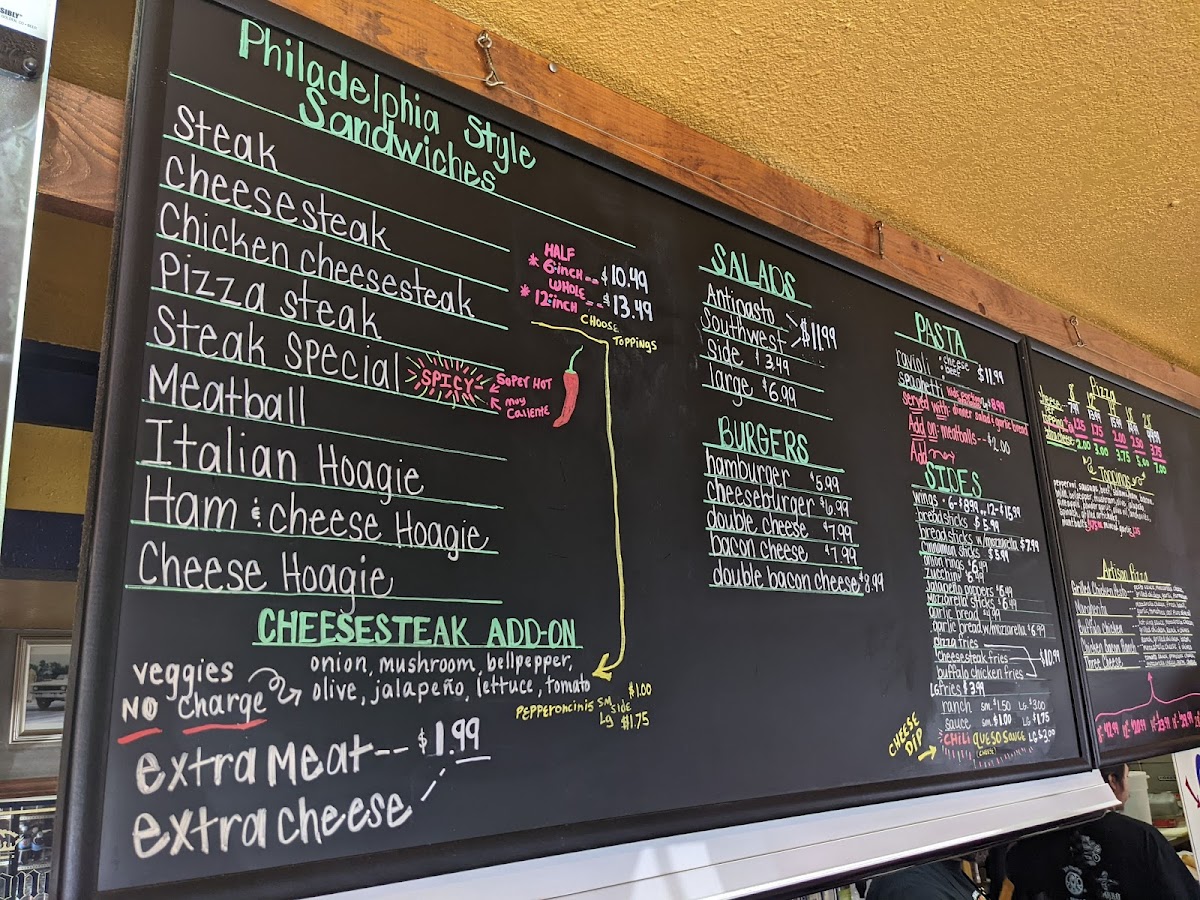 SIBLY™
Philadelphia Style
Sandwiches
Steak
Cheesesteak
Chicken cheesesteak
Pizza steak
Steak Special
SPICY
SUPER HOT
muy
caliente
Meatball
Italian Hoagie
Ham & cheese Hoagie
Cheese Hoagie
HALF
* 6-inch -- $10.49
WHOLE
* 12-inch -- $13.99
CHOOSE
TOPPINGS
CHEESESTEAK ADD-ON
veggies
NO charge
onion, mushroom, bellpepper,
olive, jalapeño, lettuce, tomato
PEPPERONCINIS SM side $1.00
Lg $1.75
extra Meat -- $1.99
extra cheese
SALADS
Antipasto
Southwest $11.99
side $3.49
large $6.99
BURGERS
hamburger $5.99
cheeseburger $6.99
double cheese $7.99
bacon cheese $7.99
double bacon cheese $8.99
PASTA
ravioli : cheese
beef $11.99
spaghetti kids portion $8.99
served with: dinner salad & garlic bread
Add on: meatballs -- $2.00
Add
SIDES
wings - 6- $8.99 12- $15.99
breadsticks $5.99
breadsticks w/mozzarella $7.99
cinnamon sticks $5.99
onion rings $6.99
zucchini $6.99
jalapeño poppers $6.99
mozzarella sticks $6.99
garlic bread $4.99
garlic bread w/mozzarella $6.99
pizza fries
cheesesteak fries $10.99
buffalo chicken fries
LG fries $3.99
ranch sm. $1.50 LG. $3.00
sauce sm. $1.00 LG. $1.75
CHEESE
DIP
CHILI QUESO SAUCE LG $3.00
(cheese)
Pizza
cheese
1.25 1.75 2.00 2.50 3.75
2.00 3.00 3.75 5.00 7.00
Toppings
Artisan Pizza
Grilled Chicken Pesto
Margherita
Buffalo Chicken
Chicken Bacon Ranch
Three Cheese